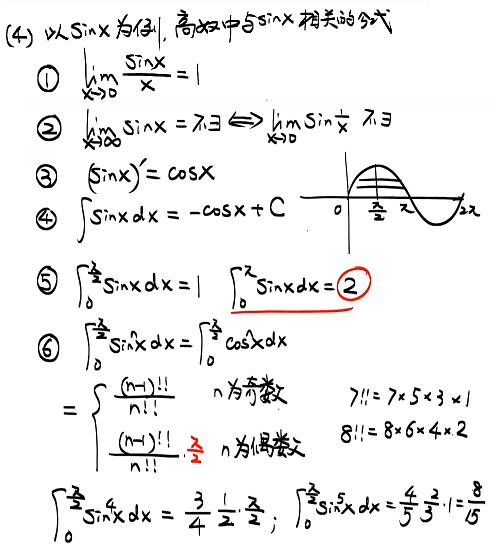 (4) 以sinx为例, 高数中与sinx相关的公式
① lim_{x→0} sinx/x = 1
② lim_{x→∞} sinx = 不∃ ⟺ lim_{x→0} sin 1/x 不∃
③ (sinx)′ = cosx
④ ∫sinxdx = -cosx + C
0 π/2 π 2π
⑤ ∫_0^{π/2} sinxdx = 1 ∫_0^π sinxdx = 2
⑥ ∫_0^{π/2} sin^n x dx = ∫_0^{π/2} cos^n x dx
= { (n-1)!!/n!! n为奇数 7!! = 7×5×3×1
(n-1)!!/n!! · π/2 n为偶数 8!! = 8×6×4×2
∫_0^{π/2} sin^4 x dx = 3/4 · 1/2 · π/2 ; ∫_0^{π/2} sin^5 x dx = 4/5 · 2/3 · 1 = 8/15